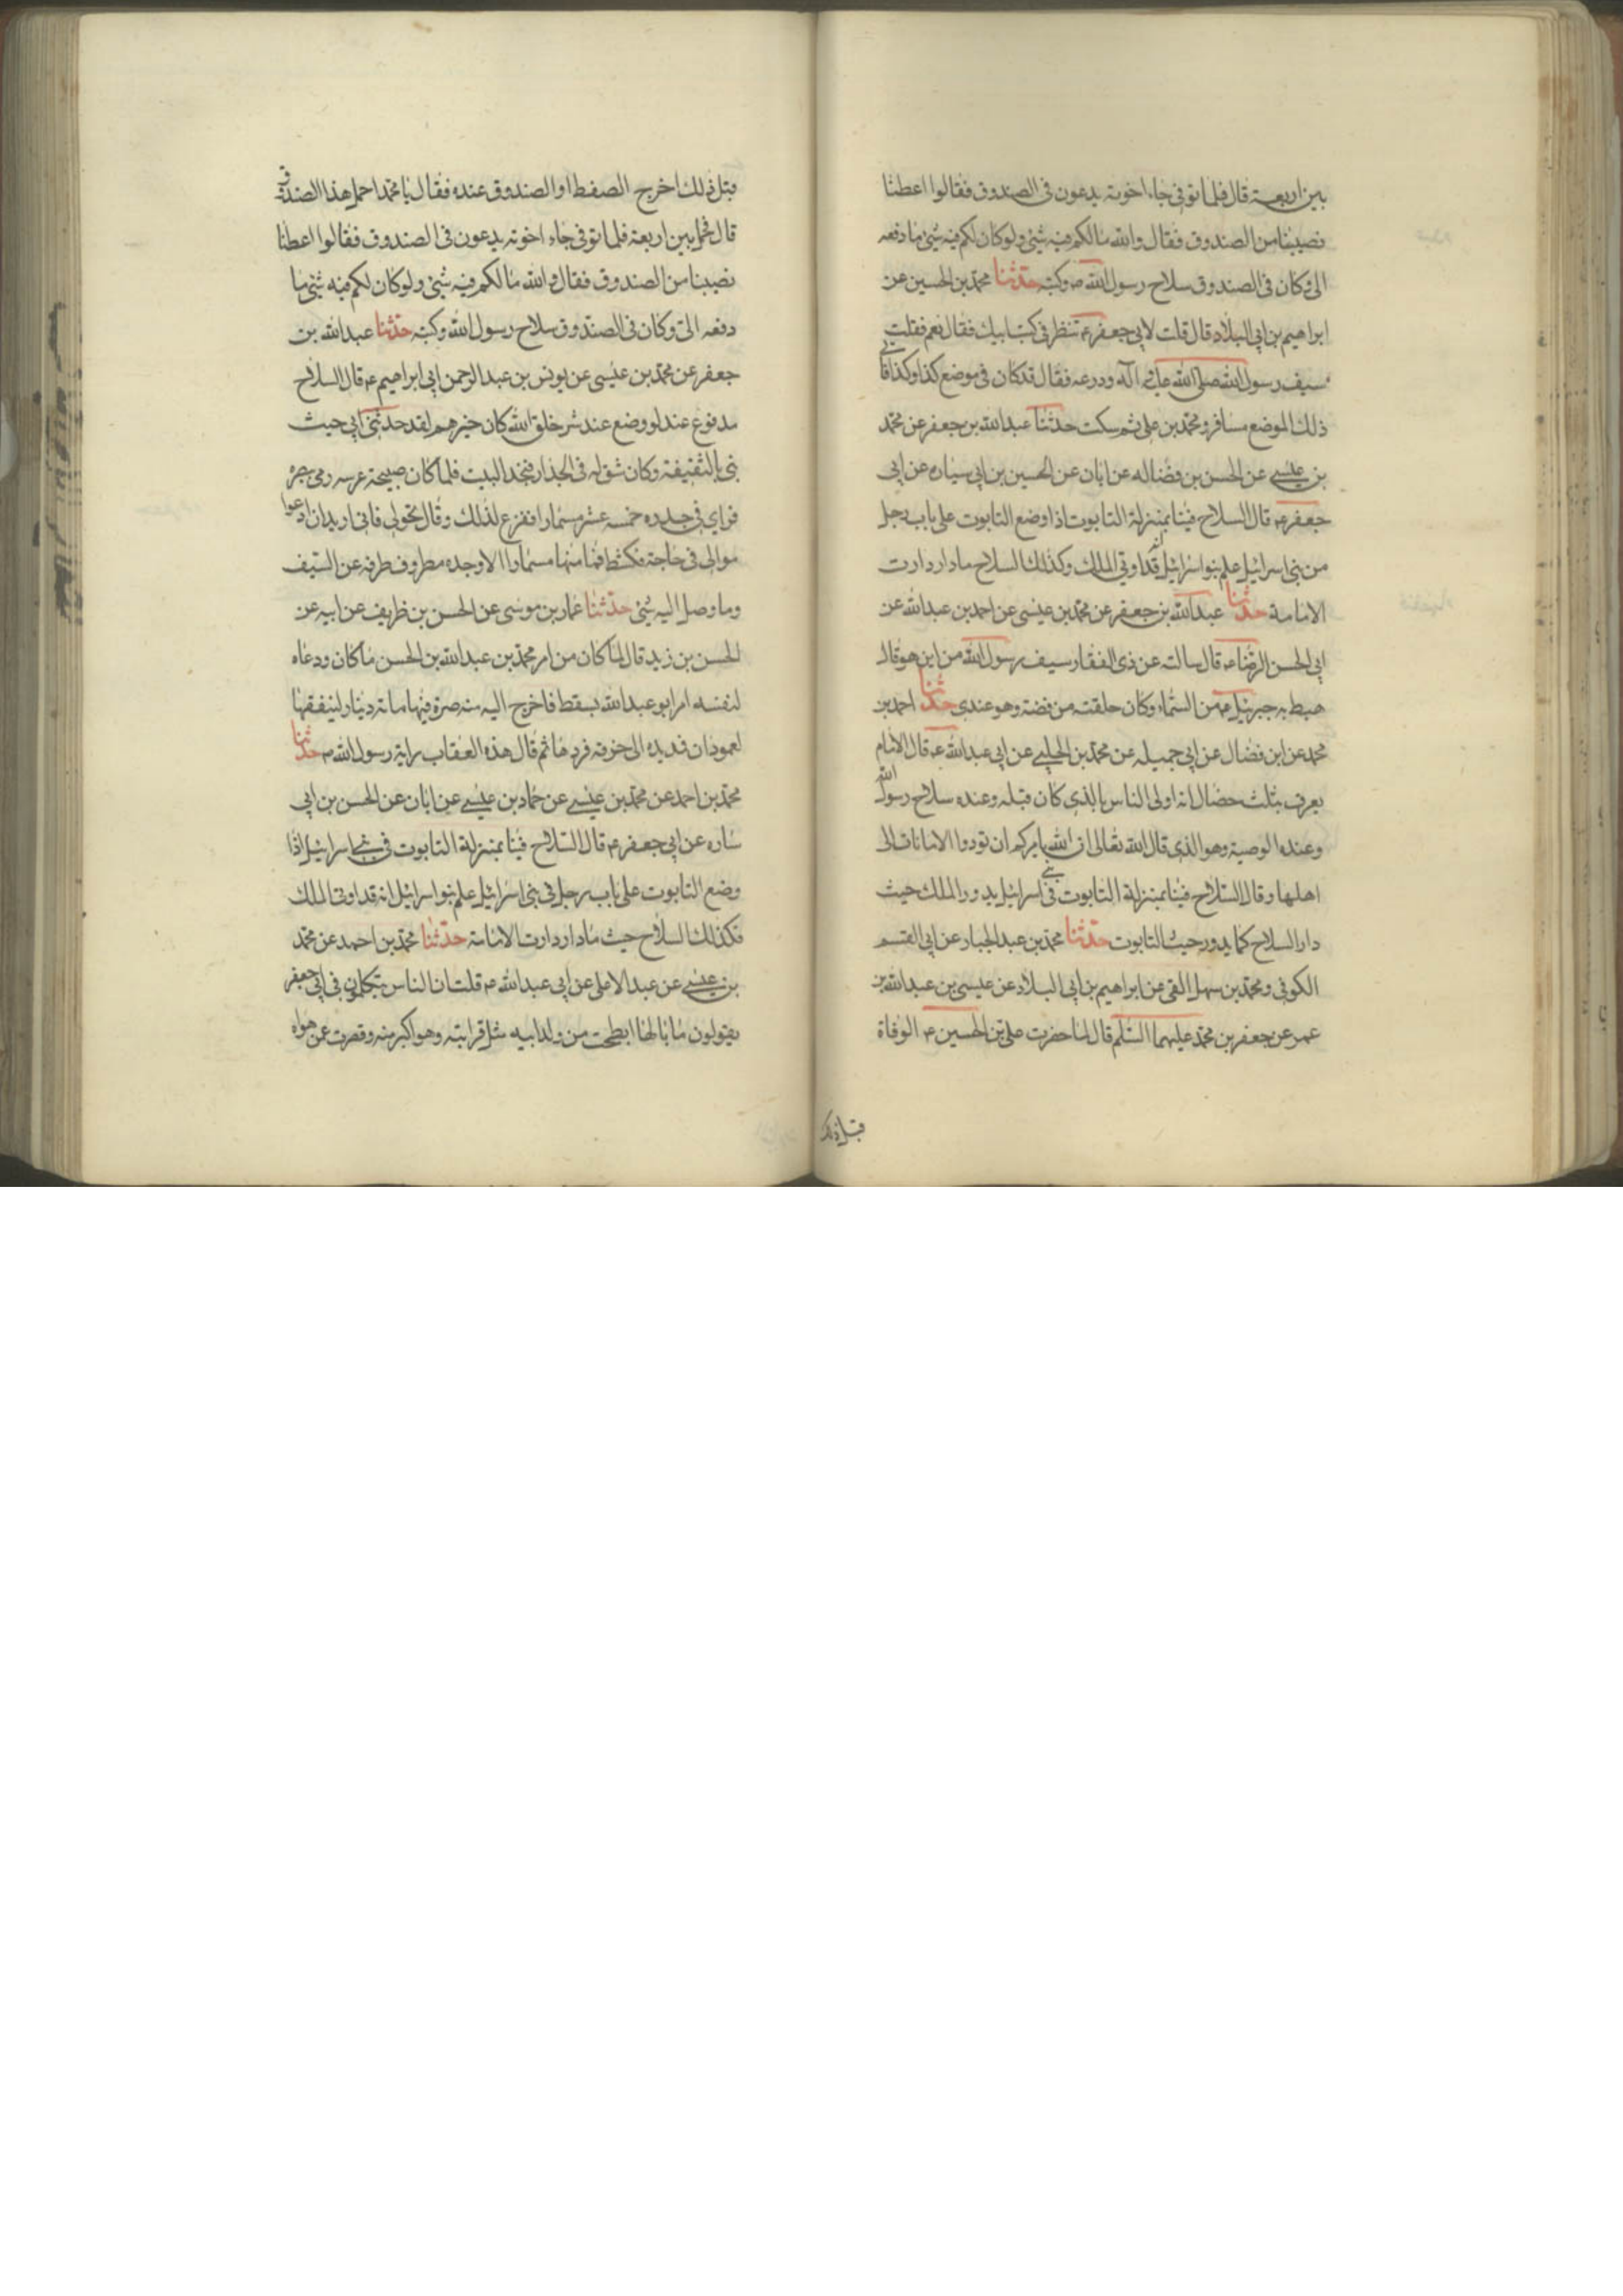 بين اربعة قال فلما توفى جاء اخوته يدعون فى الصندوق فقالوا اعطنا
نصيبنا من الصندوق فقال والله مالكم فيه شئ ولو كان لكم فيه شئ ما دفعه
الى وكان فى الصندوق سلاح رسول الله ص وكتبه حدثنا محمد بن الحسين عن
ابراهيم بن ابى البلاد قال قلت لابى جعفر ع تنظر فى كتب ابيك فقال نعم فقلت
سيف رسول الله صلى الله عليه وآله ودرعه فقال قد كان فى موضع كذا وكذا فاتى
ذلك الموضع مسافر ومحمد بن على ثم سكت حدثنا عبد الله بن جعفر عن محمد
بن عيسى عن الحسن بن فضاله عن ابان عن الحسين بن ابى ساره عن ابى
جعفر ع قال السلاح فينا بمنزلة التابوت اذا وضع التابوت على باب رجل
من بنى اسرائيل علم بنو اسرائيل انه قد اوتى الملك وكذلك السلاح ما دار دارت
الامامة حدثنا عبد الله بن جعفر عن محمد بن عيسى عن احمد بن عبد الله عن
ابى الحسن الرضا ع قال سالته عن ذى الفقار سيف رسول الله من اين هو قال
هبط به جبرئيل ع من السماء وكان حلقته من فضة وهو عندى حدثنا احمد بن
محمد عن ابن فضال عن ابى جميله عن محمد بن الحلبى عن ابى عبد الله ع قال الامام
يعرف بثلث خصال انه اولى الناس بالذى كان قبله وعنده سلاح رسول الله
وعنده الوصية وهو الذى قال الله تعالى ان الله يامركم ان تودوا الامانات الى
اهلها وقال السلاح فينا بمنزلة التابوت فى بنى اسرائيل يدور الملك حيث
دار السلاح كما يدور حيث التابوت حدثنا محمد بن عبد الجبار عن ابى القسم
الكوفى ومحمد بن سهل القمى عن ابراهيم بن ابى البلاد عن عيسى بن عبد الله بن
عمر عن جعفر بن محمد عليهما السلم قال لما حضرت على بن الحسين ع الوفاة
قبل ذلك
قبل ذلك اخرج الصفط او الصندوق عنده فقال يا محمد احمل هذا الصندوق
قال فحمل بين اربعة فلما توفى جاء اخوته يدعون فى الصندوق فقالوا اعطنا
نصيبنا من الصندوق فقال والله ما لكم فيه شئ ولو كان لكم فيه شئ ما
دفعه الى وكان فى الصندوق سلاح رسول الله وكتبه حدثنا عبد الله بن
جعفر عن محمد بن عيسى عن يونس بن عبد الرحمن ابى ابراهيم ع قال السلاح
مدفوع عند لو وضع عند شر خلق الله كان خيرهم لقد حدثنى ابى حيث
بنى بالثقيفة وكان شق له فى الجدار فنجد البيت فلما كان صبيحة عرسه رمى
فراى فى جدره خمسه عشر مسمارا ففزع لذلك وقال تحولى فانى اريد ان ادعوا
موالى فى حاجة فكشطه فما منها مسمارا الا وجده مطروف طرفه عن السيف
وما وصل اليه شئ حدثنا عمار بن موسى عن الحسن بن ظريف عن ابيه عن
الحسن بن زيد قال لما كان من امر محمد بن عبد الله بن الحسن ما كان ودعاه
لنفسه امر ابو عبد الله بسفط فاخرج اليه منه صرة فيها مائة دينار لينفقها
لعمودان فمد يده الى خرقه فردها ثم قال هذه العقاب راية رسول الله ص حدثنا
محمد بن احمد عن محمد بن عيسى عن حماد بن عيسى عن ابان عن الحسن بن ابى
ساره عن ابى جعفر ع قال السلاح فينا بمنزلة التابوت فى بنى اسرائيل اذا
وضع التابوت على باب رجل فى بنى اسرائيل علم بنو اسرائيل انه قد اوتى الملك
فكذلك السلاح حيث ما دار دارت الامامة حدثنا محمد بن احمد عن محمد
بن عيسى عن عبد الاعلى عن ابى عبد الله ع قلت ان الناس يتكلمون فى ابى جعفر
يقولون ما بالها ابطحت من ولد ابيه مثل قرابته وهو اكبر منه وقصرت عمن هواه